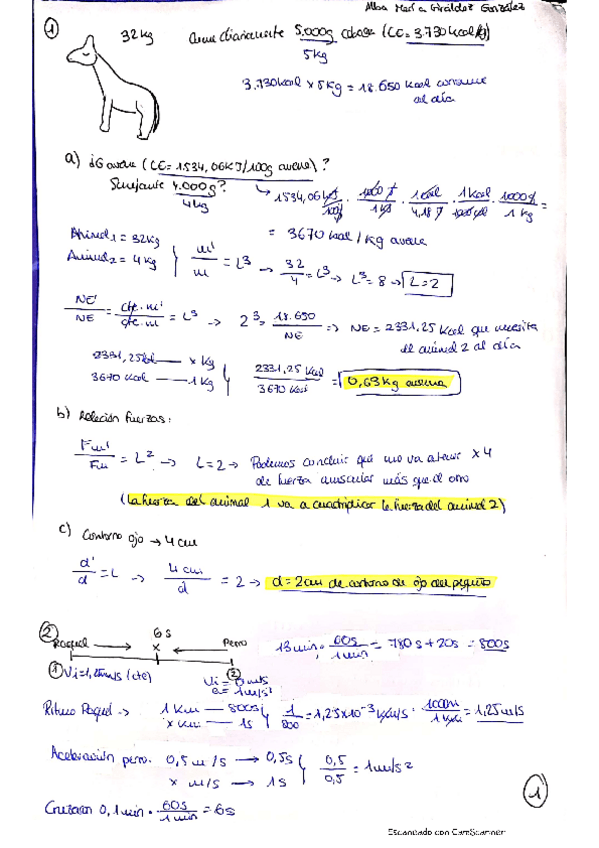 Alba María Giraldez González
① 32kg come diariamente 5.000g cebada (CE= 3.730 kcal/kg)
5kg
3.730kcal x 5kg = 18.650 kcal consume
al día
a) ¿G avena (CE= 1534,06KJ/100g avena)?
Semejante 4.000g?
4kg
1534,06 KJ/100g · 1000 J/1 KJ · 1 cal/4,18 J · 1 Kcal/1000 cal · 1000g/1 kg =
= 3670 kcal / kg avena
Animal 1 = 32kg
Animal 2 = 4kg } m'/m = L³ → 32/4 = L³ → L³ = 8 → L = 2
NE'/NE = cte·m'/cte·m = L³ → 2³ = 18.650/NE => NE = 2331,25 Kcal que necesita
el animal 2 al día
2331,25 kcal — x kg
3670 kcal — 1 kg } 2331,25 kcal/3670 kcal = 0,63 kg avena
b) Relación fuerzas:
Fm'/Fm = L² → L=2 → Podemos concluir que uno va a tener x4
de fuerza muscular más que el otro
(La fuerza del animal 1 va a cuadriplicar la fuerza del animal 2)
c) Contorno ojo → 4cm
d'/d = L → 4 cm/d = 2 → d = 2cm de contorno de ojo del pequeño
② 6s
Raquel → x ← Perro 13min · 60s/1min = 780s + 20s = 800s
① Vi = 1,25m/s (cte) ②
Vi = 0 m/s
a = 1 m/s²
Ritmo Raquel → 1 Km — 800s
x km — 1s } 1/800 = 1,25x10⁻³ Km/s · 1000m/1 Km = 1,25 m/s
Aceleración perro. 0,5 m/s → 0,5s
x m/s → 1s } 0,5/0,5 = 1 m/s²
Cruzaron 0,1 min · 60s/1 min = 6s
①
Escaneado con CamScanner